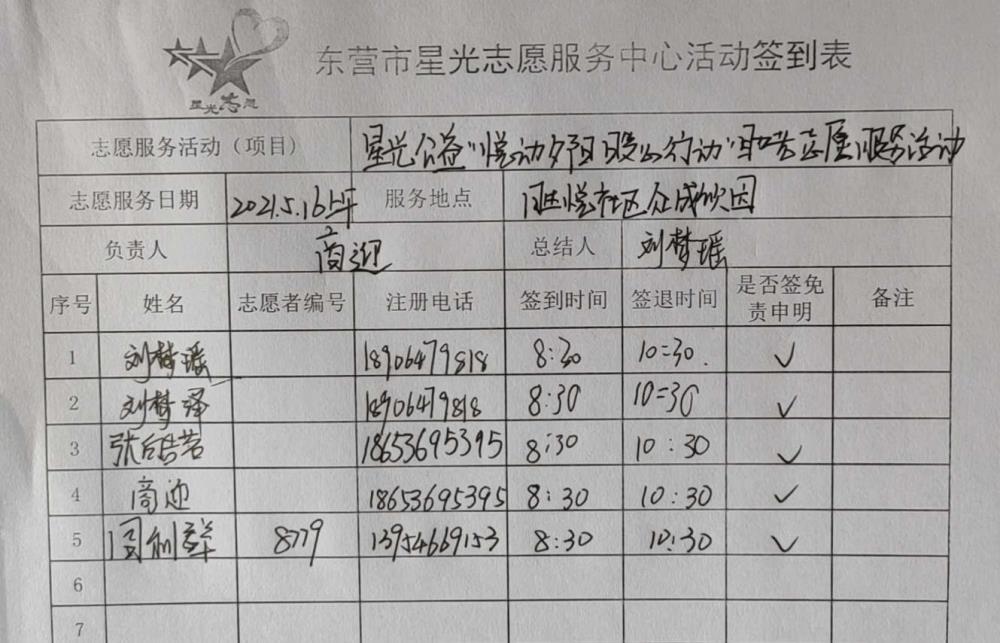 星光志愿
东营市星光志愿服务中心活动签到表
志愿服务活动（项目） 星光公益“悦动夕阳 暖心行动”助老志愿服务活动
志愿服务日期 2021.5.16上午 服务地点 悦社区众成
负责人 商迎 总结人 刘梦瑶
序号 姓名 志愿者编号 注册电话 签到时间 签退时间 是否签免责申明 备注
1 刘梦瑶 18906479818 8:30 10:30. ✓
2 刘梦泽 18906479818 8:30 10:30 ✓
3 张 18653695395 8:30 10:30 ✓
4 商迎 18653695395 8:30 10:30 ✓
5 周利群 8779 13954669153 8:30 10:30 ✓
6
7